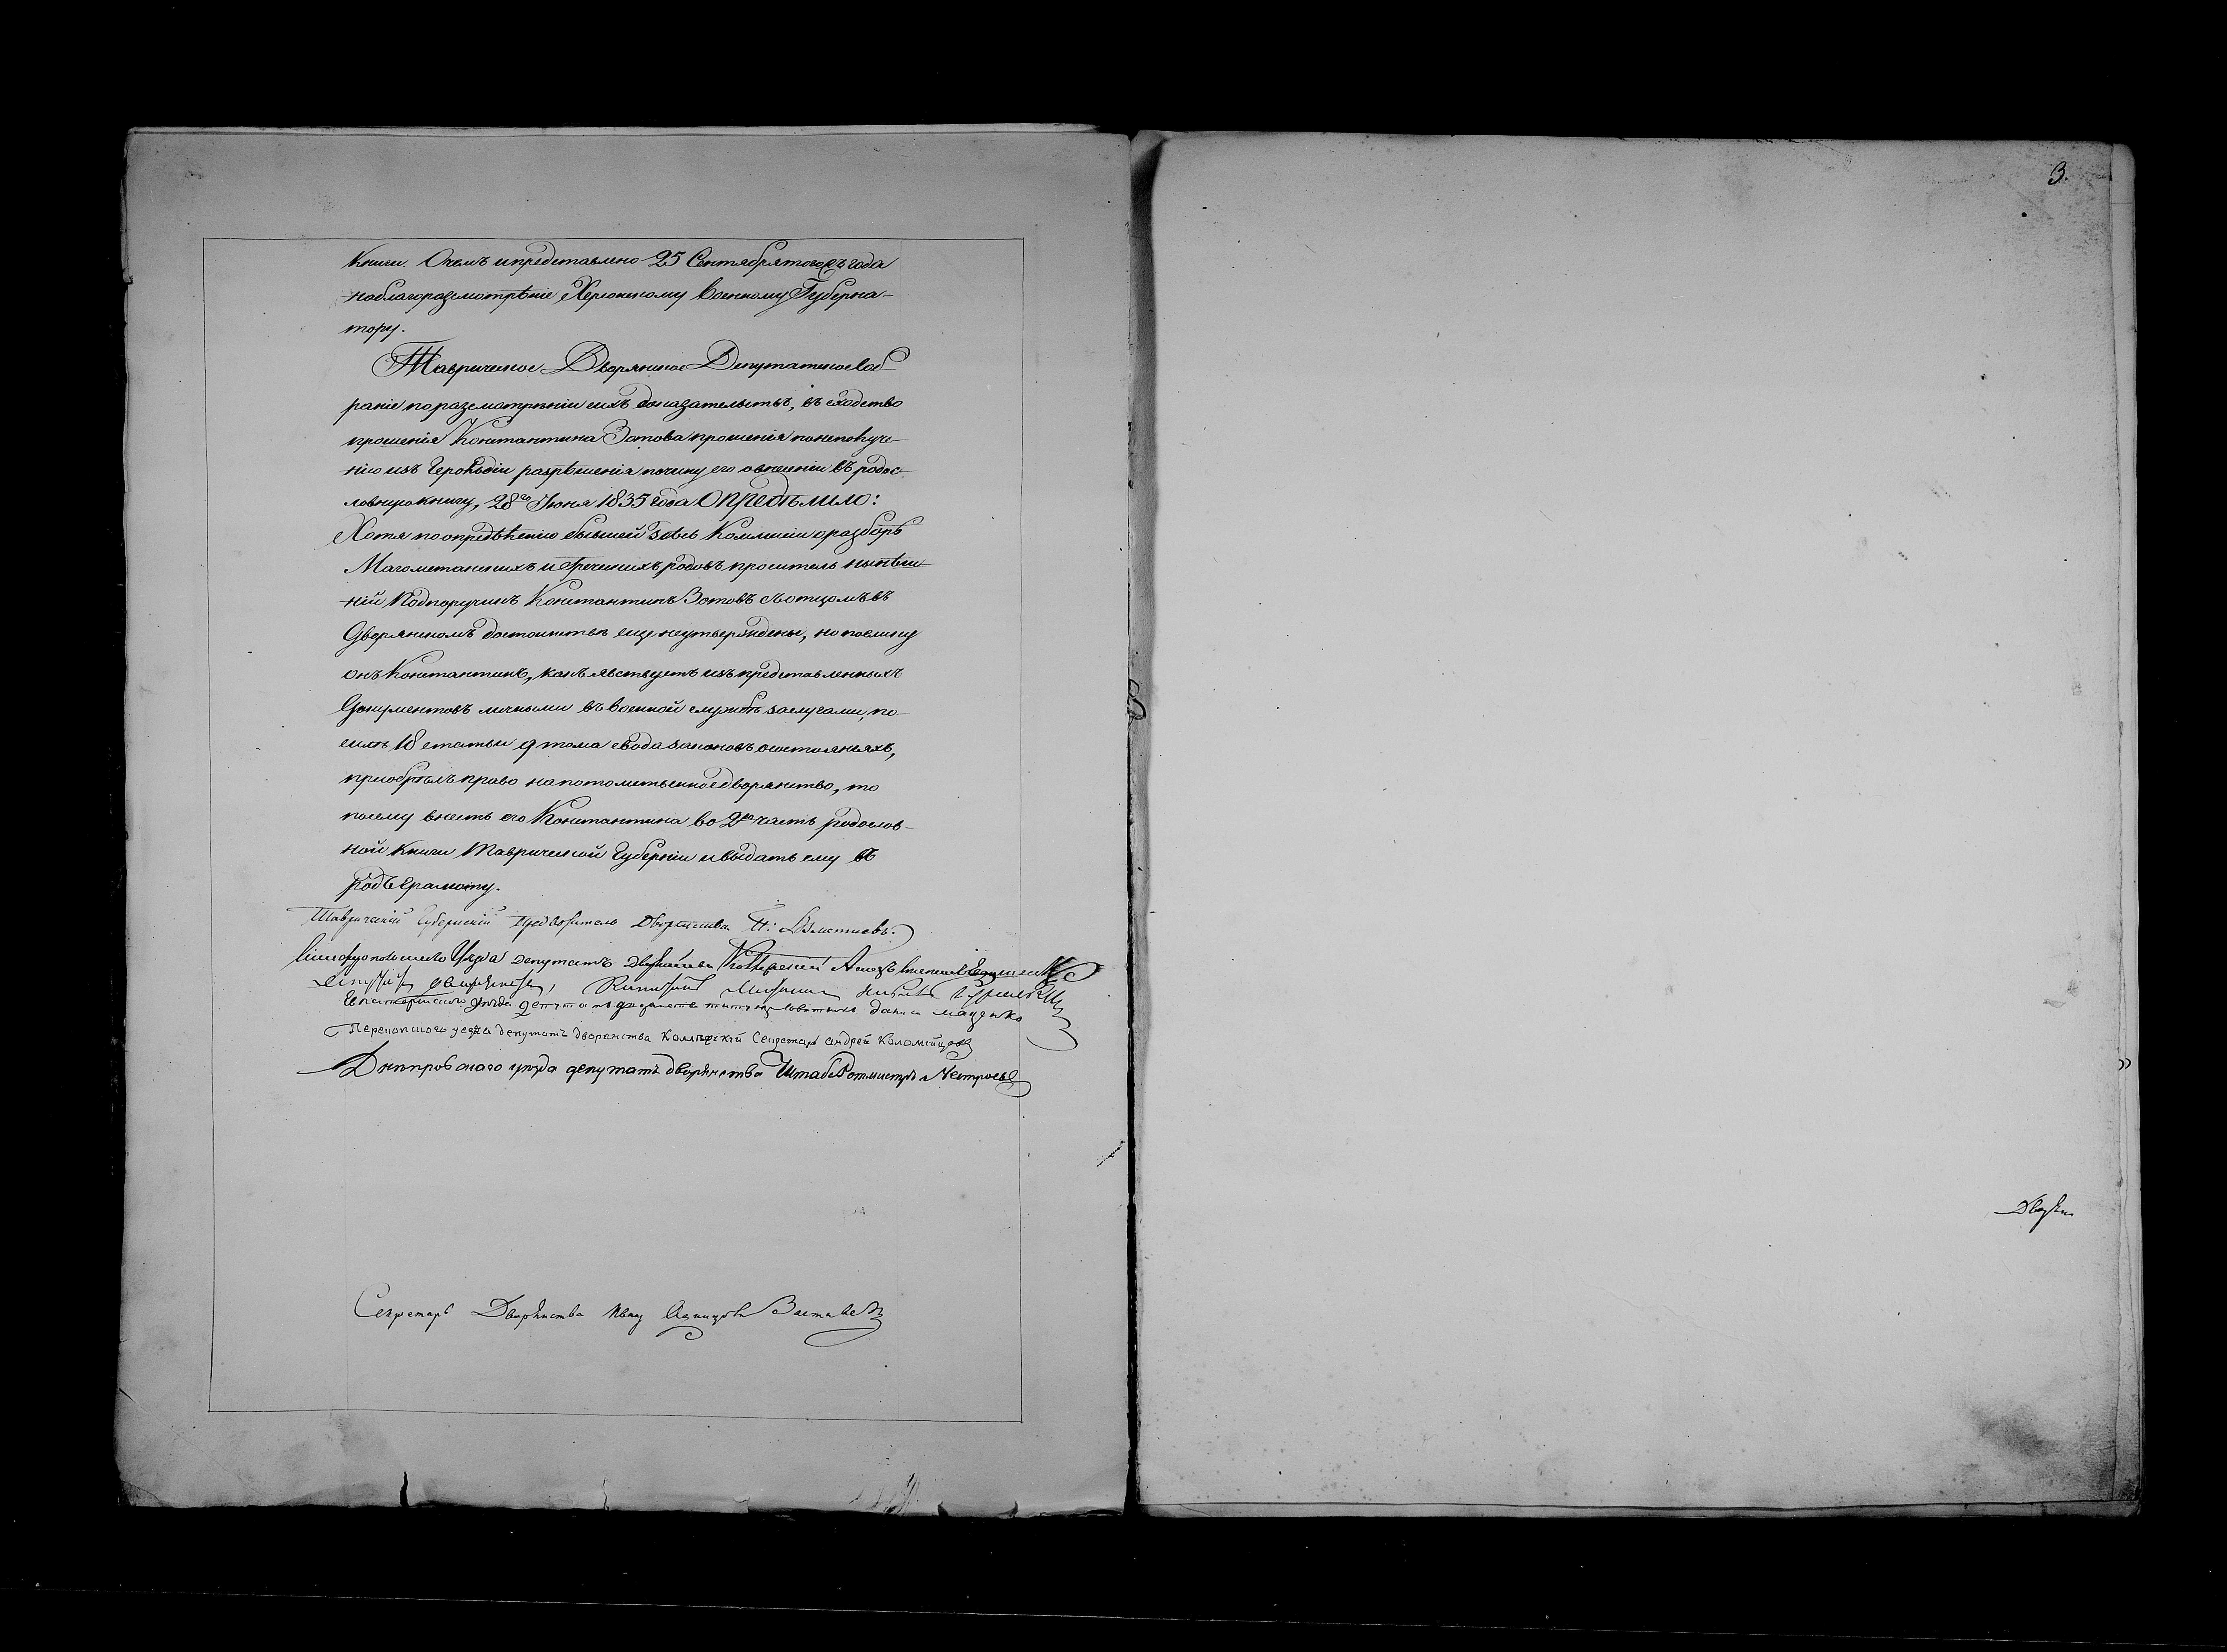 Книги. О чемъ и представлено 25 Сентября того жъ года
на благоразсмотрѣніе Херсонскому Военному Губерна-
тору.
Таврическое Дворянское Депутатское Соб-
раніе по разсмотрѣніи сихъ доказательствъ, въ сходство
прошенія Константина Зотова прошенія по неполуче-
нію изъ Герольдіи разрѣшенія по чину его о внесеніи въ родос-
ловную книгу, 28го Іюня 1835 года Опредѣлило:
Хотя по опредѣленію бывшей здѣсь Коммисіи о разборѣ
Магометанскихъ и Греческихъ родовъ проситель нынѣш-
ній Подпоручикъ Константинъ Зотовъ съ отцомъ въ
Дворянскомъ достоинствѣ еще не утверждены, но поелику
онъ Константинъ, какъ явствуетъ изъ представленныхъ
Документовъ личными въ военной службѣ заслугами, по
силѣ 18 статьи 9 тома свода законовъ о состояніяхъ,
приобрѣлъ право на потомственное дворянство, то
посему внесть его Константина во 2ю часть родослов-
ной книги Таврической Губерніи и выдать ему въ
родъ Грамоту.
Таврическій Губернскій Предводитель Дворянства
Симферопольскаго Уѣзда депутатъ дворянства
дворянства,
уѣзда депутатъ
Перекопскаго уезда депутатъ дворянства Коллежскій Секретарь Андрей Коломійцовъ
Днепровскаго уезда депутатъ дворянства Штабс Ротмистръ
Секретарь Дворянства
3.